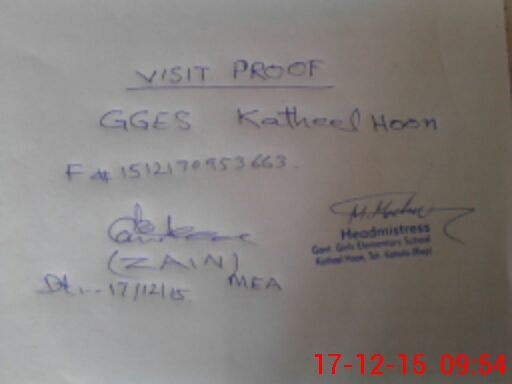 VISIT PROOF
GGES Katheel Hoon
F # 1512170953663.
(ZAIN)
MEA
Dt... 17/12/15
Headmistress
Govt. Girls Elementary School
Katheel Hoon, Teh: Kahuta (Rwp)
17-12-15 09:54